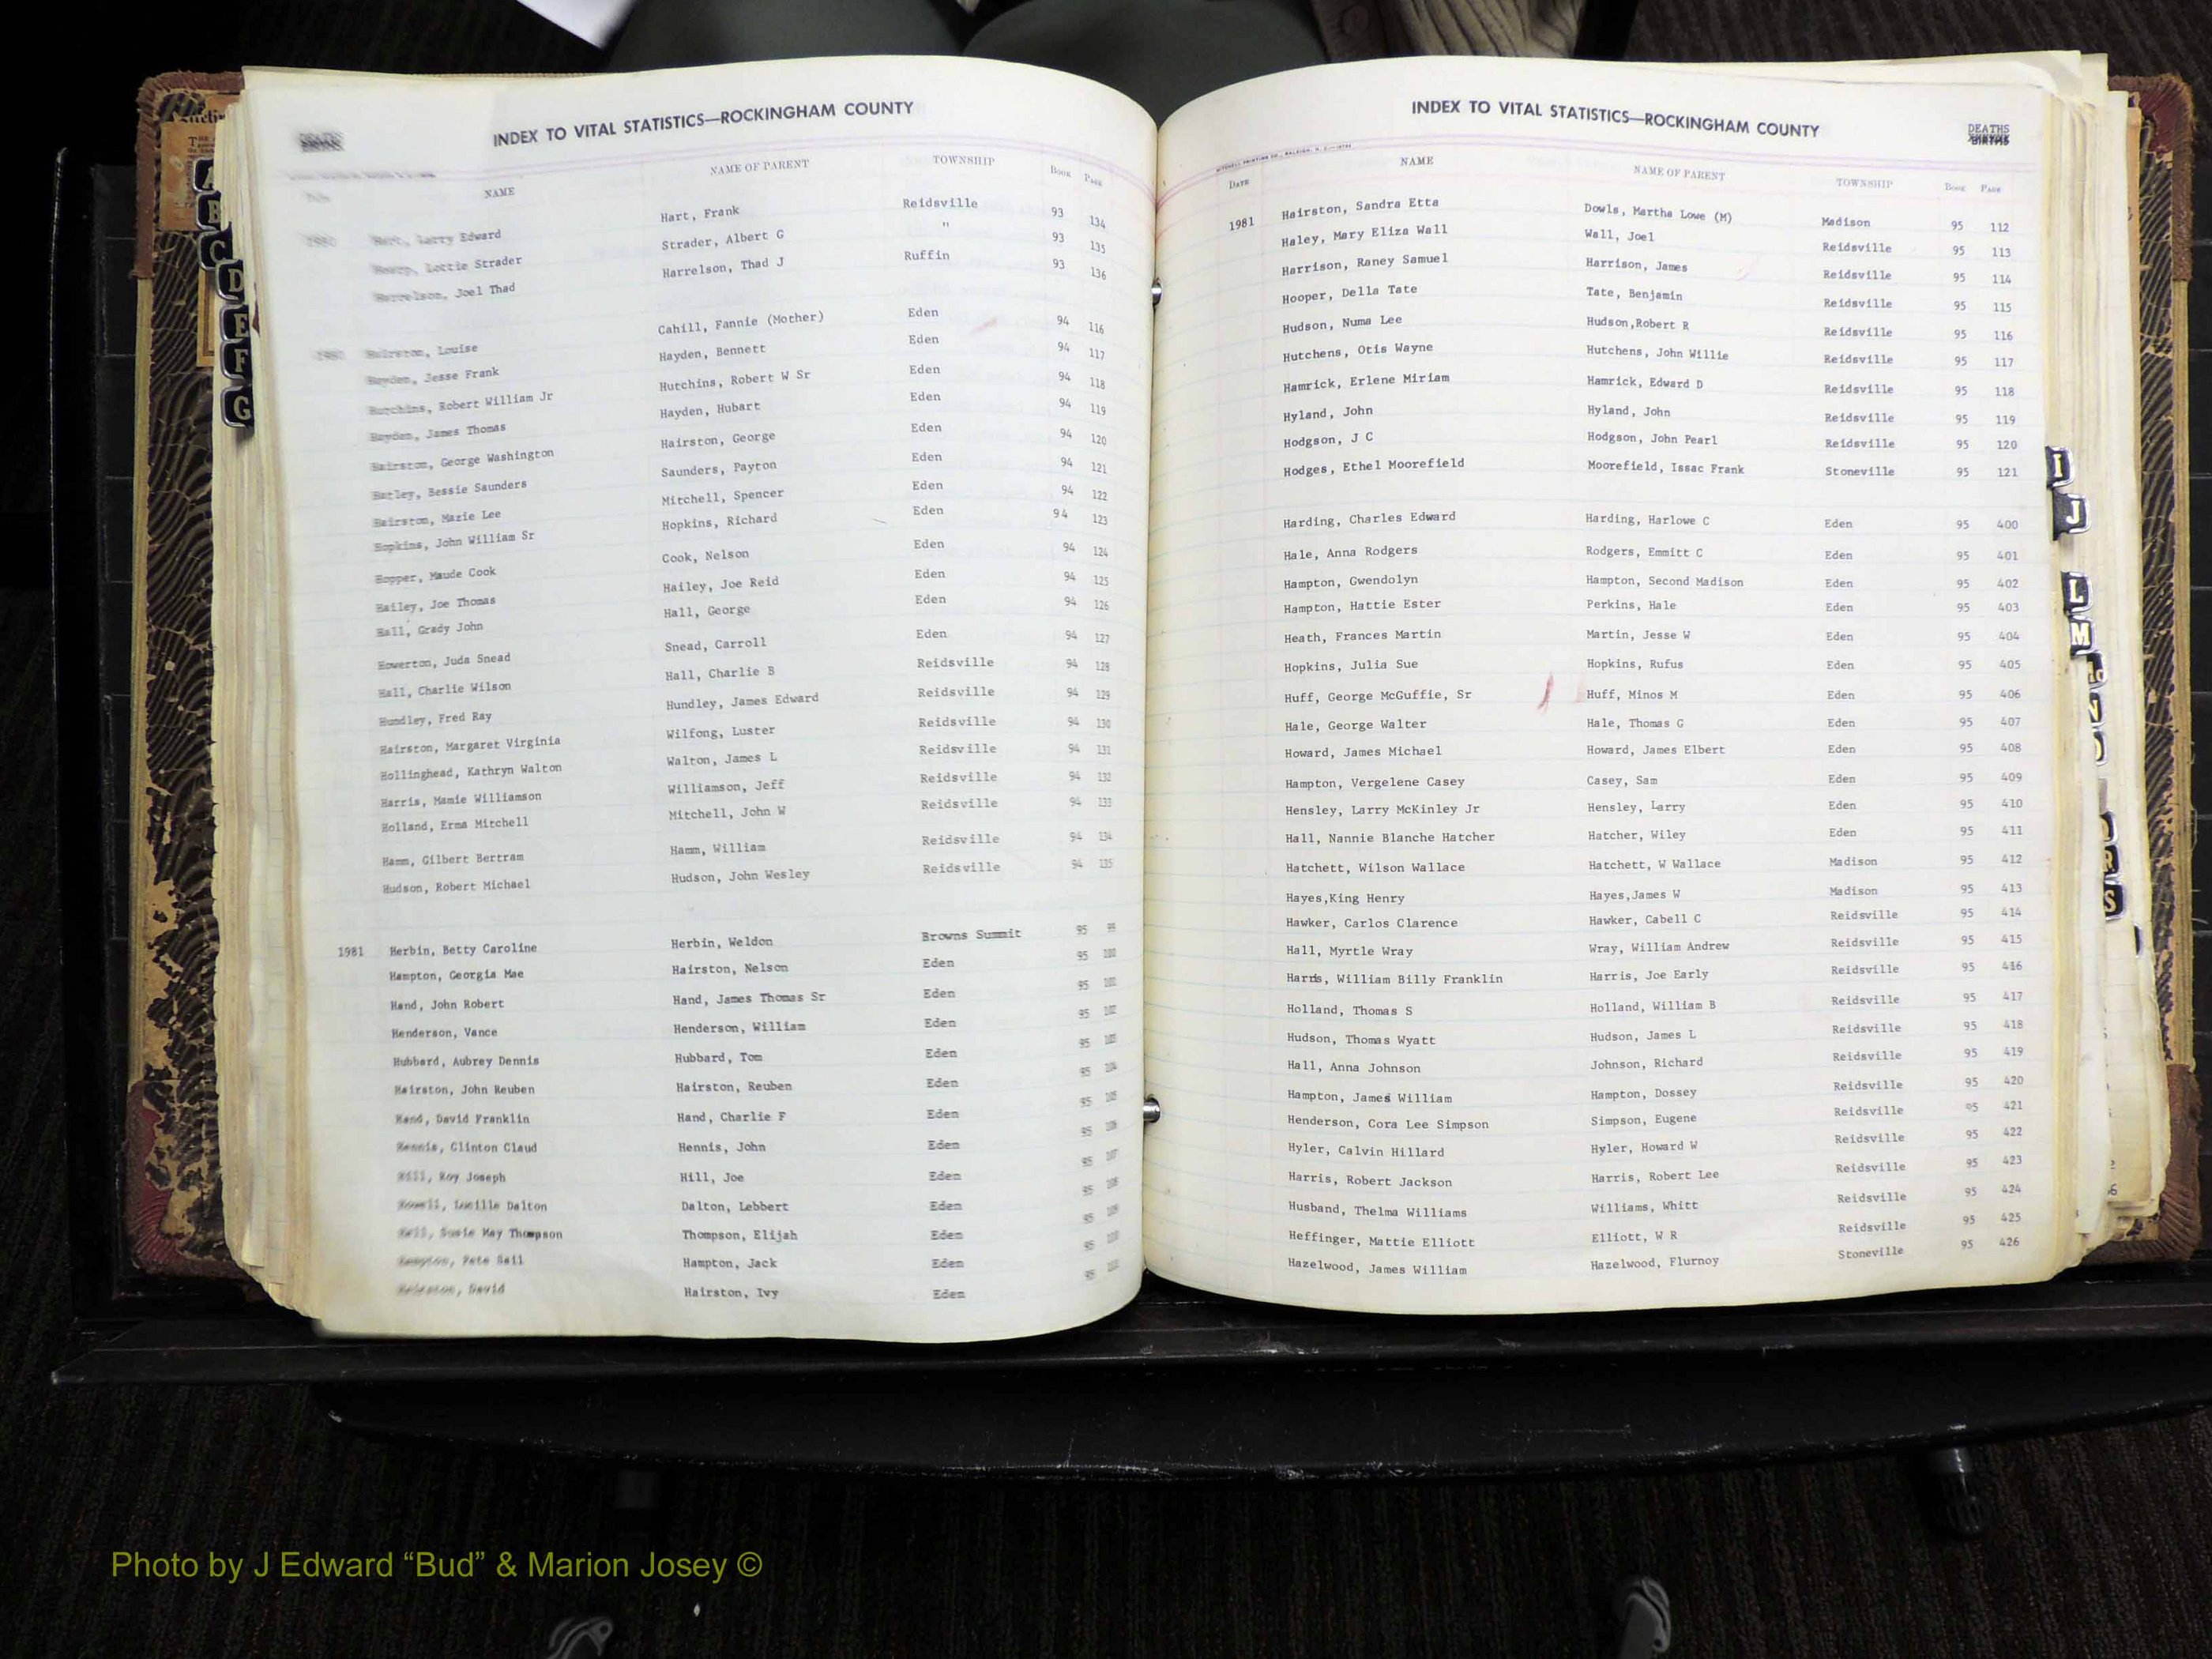 DEATHS
INDEX TO VITAL STATISTICS—ROCKINGHAM COUNTY
NAME NAME OF PARENT TOWNSHIP BOOK PAGE
1980 Hart, Larry Edward Hart, Frank Reidsville 93 134
Lottie Strader Strader, Albert G " 93 135
Harrelson, Joel Thad Harrelson, Thad J Ruffin 93 136
1980 Hairston, Louise Cahill, Fannie (Mother) Eden 94 116
Hayden, Jesse Frank Hayden, Bennett Eden 94 117
Hutchins, Robert William Jr Hutchins, Robert W Sr Eden 94 118
Hayden, James Thomas Hayden, Hubart Eden 94 119
Hairston, George Washington Hairston, George Eden 94 120
Bessie Saunders Saunders, Payton Eden 94 121
Hairston, Mazie Lee Mitchell, Spencer Eden 94 122
Hopkins, John William Sr Hopkins, Richard Eden 94 123
Hopper, Maude Cook Cook, Nelson Eden 94 124
Hailey, Joe Thomas Hailey, Joe Reid Eden 94 125
Hall, Grady John Hall, George Eden 94 126
Howerton, Juda Snead Snead, Carroll Eden 94 127
Hall, Charlie Wilson Hall, Charlie B Reidsville 94 128
Hundley, Fred Ray Hundley, James Edward Reidsville 94 129
Hairston, Margaret Virginia Wilfong, Luster Reidsville 94 130
Hollinghead, Kathryn Walton Walton, James L Reidsville 94 131
Harris, Mamie Williamson Williamson, Jeff Reidsville 94 132
Holland, Erma Mitchell Mitchell, John W Reidsville 94 133
Hamm, Gilbert Bertram Hamm, William Reidsville 94 134
Hudson, Robert Michael Hudson, John Wesley Reidsville 94 135
1981 Herbin, Betty Caroline Herbin, Weldon Browns Summit 95 99
Hampton, Georgia Mae Hairston, Nelson Eden 95 100
Hand, John Robert Hand, James Thomas Sr Eden 95 101
Henderson, Vance Henderson, William Eden 95 102
Hubbard, Aubrey Dennis Hubbard, Tom Eden 95 103
Hairston, John Reuben Hairston, Reuben Eden 95 104
Hand, David Franklin Hand, Charlie F Eden 95 105
Hennis, Clinton Claud Hennis, John Eden 95 106
Hill, Roy Joseph Hill, Joe Eden 95 107
Lucille Dalton Dalton, Lebbert Eden 95 108
Susie May Thompson Thompson, Elijah Eden 95 109
Hampton, Pete Hampton, Jack Eden 95 110
Hairston, David Hairston, Ivy Eden 95 111
INDEX TO VITAL STATISTICS—ROCKINGHAM COUNTY
DEATHS
BIRTHS
MITCHELL PRINTING CO., RALEIGH, N. C.
DATE NAME NAME OF PARENT TOWNSHIP BOOK PAGE
1981 Hairston, Sandra Etta Dowls, Martha Lowe (M) Madison 95 112
Haley, Mary Eliza Wall Wall, Joel Reidsville 95 113
Harrison, Raney Samuel Harrison, James Reidsville 95 114
Hooper, Della Tate Tate, Benjamin Reidsville 95 115
Hudson, Numa Lee Hudson,Robert R Reidsville 95 116
Hutchens, Otis Wayne Hutchens, John Willie Reidsville 95 117
Hamrick, Erlene Miriam Hamrick, Edward D Reidsville 95 118
Hyland, John Hyland, John Reidsville 95 119
Hodgson, J C Hodgson, John Pearl Reidsville 95 120
Hodges, Ethel Moorefield Moorefield, Issac Frank Stoneville 95 121
Harding, Charles Edward Harding, Harlowe C Eden 95 400
Hale, Anna Rodgers Rodgers, Emmitt C Eden 95 401
Hampton, Gwendolyn Hampton, Second Madison Eden 95 402
Hampton, Hattie Ester Perkins, Hale Eden 95 403
Heath, Frances Martin Martin, Jesse W Eden 95 404
Hopkins, Julia Sue Hopkins, Rufus Eden 95 405
Huff, George McGuffie, Sr Huff, Minos M Eden 95 406
Hale, George Walter Hale, Thomas G Eden 95 407
Howard, James Michael Howard, James Elbert Eden 95 408
Hampton, Vergelene Casey Casey, Sam Eden 95 409
Hensley, Larry McKinley Jr Hensley, Larry Eden 95 410
Hall, Nannie Blanche Hatcher Hatcher, Wiley Eden 95 411
Hatchett, Wilson Wallace Hatchett, W Wallace Madison 95 412
Hayes,King Henry Hayes,James W Madison 95 413
Hawker, Carlos Clarence Hawker, Cabell C Reidsville 95 414
Hall, Myrtle Wray Wray, William Andrew Reidsville 95 415
Harris, William Billy Franklin Harris, Joe Early Reidsville 95 416
Holland, Thomas S Holland, William B Reidsville 95 417
Hudson, Thomas Wyatt Hudson, James L Reidsville 95 418
Hall, Anna Johnson Johnson, Richard Reidsville 95 419
Hampton, James William Hampton, Dossey Reidsville 95 420
Henderson, Cora Lee Simpson Simpson, Eugene Reidsville 95 421
Hyler, Calvin Hillard Hyler, Howard W Reidsville 95 422
Harris, Robert Jackson Harris, Robert Lee Reidsville 95 423
Husband, Thelma Williams Williams, Whitt Reidsville 95 424
Heffinger, Mattie Elliott Elliott, W R Reidsville 95 425
Hazelwood, James William Hazelwood, Flurnoy Stoneville 95 426
A
B
C
D
E
F
G
I
J
L
M
N
R
S
Photo by J Edward “Bud” & Marion Josey ©